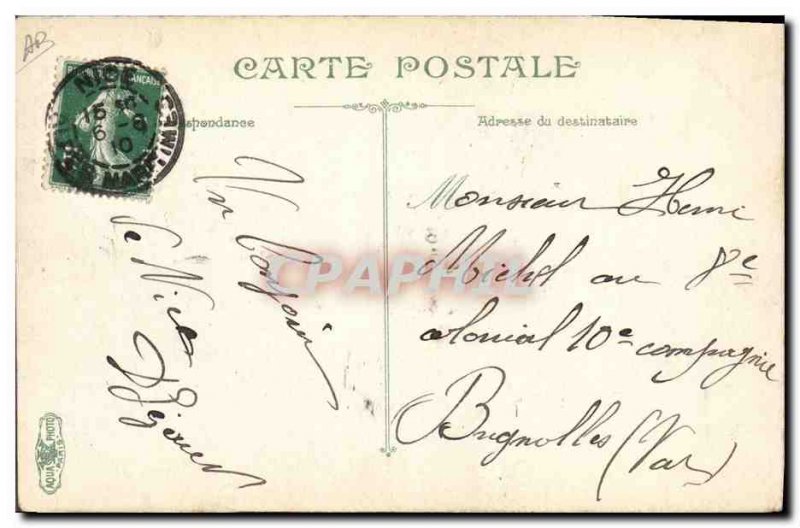 AB
CARTE POSTALE
NICE
15 30
6 - 9
10
ALPES MARITIMES
Correspondance
Adresse du destinataire
Un Bonjour
de Nice
Monsieur Henri
Michel au 8e
colonial 10e compagnie
Brignolles (Var)
CPAPHIL
AQUA PHOTO
PARIS